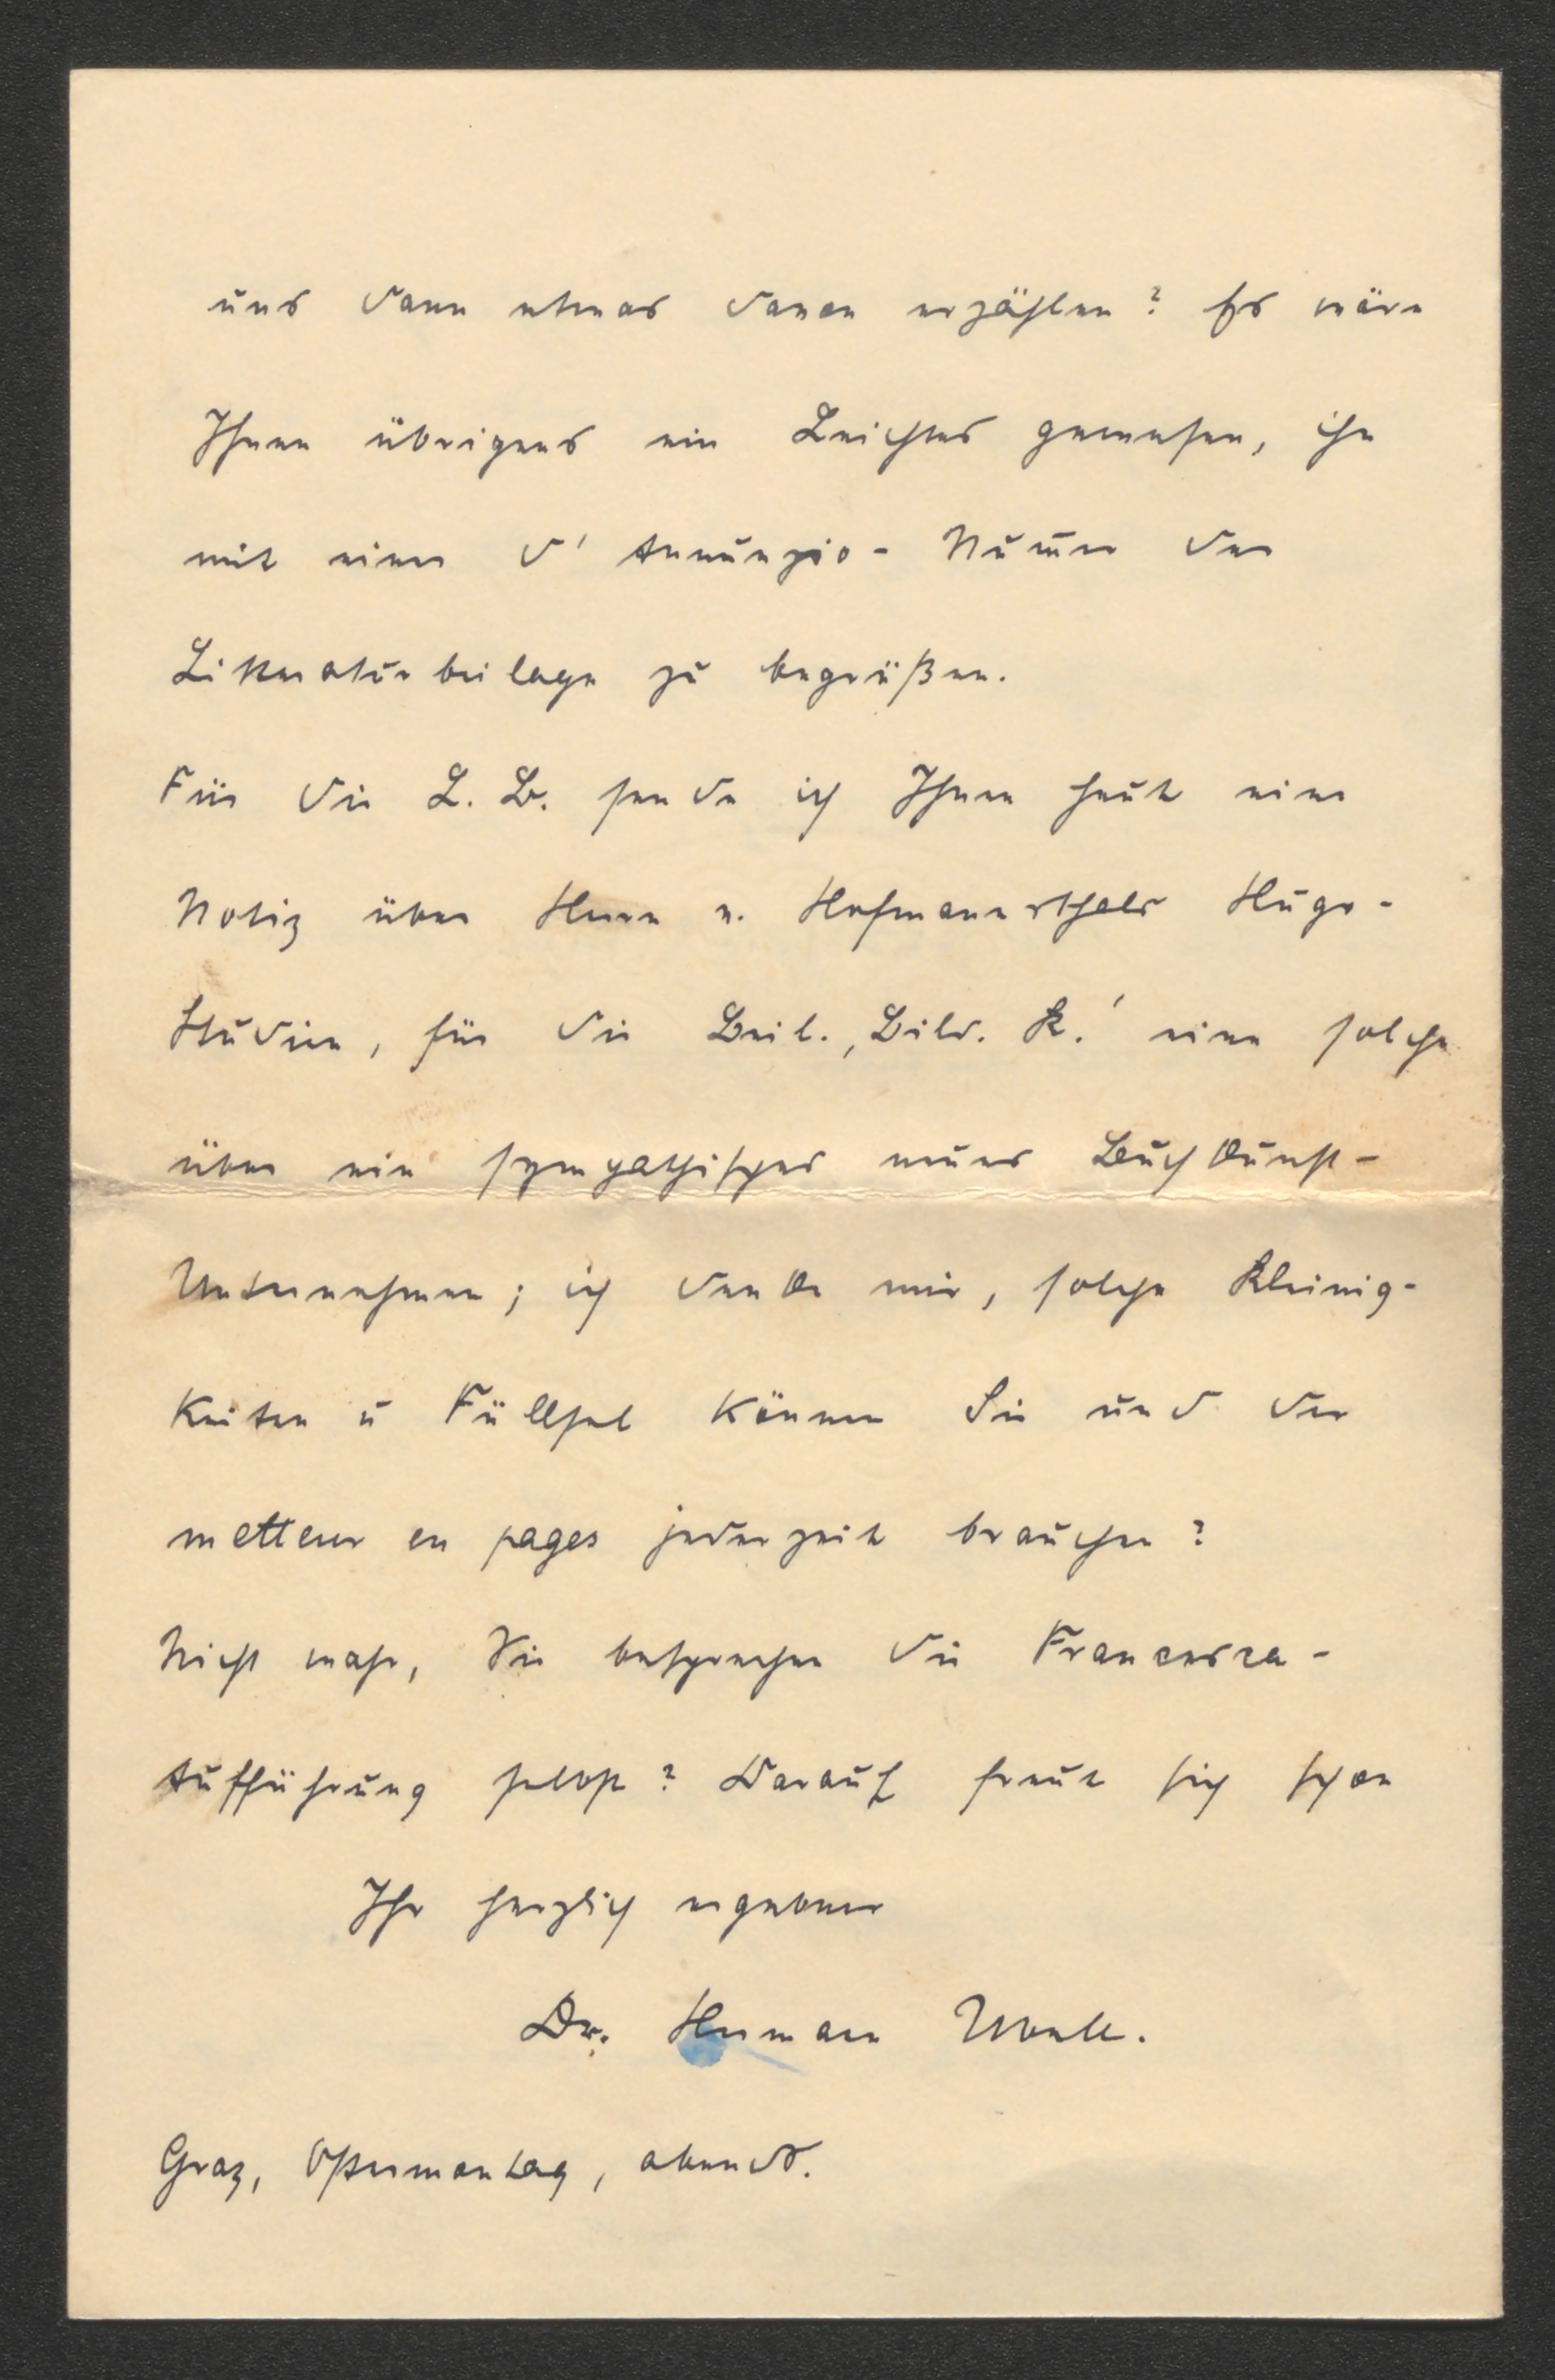 uns dann etwas davon erzählen? Es wäre
Ihnen übrigens ein Leichtes gewesen, ihn
mit einer d'Annunzio-Num̅er der
Litteraturbeilage zu begrüßen.
Für die L. B. sende ich Ihnen heute eine
Notiz über Herrn v. Hofmannsthals Hugo-
Studie, für die Beil. ‚Bild. K.' eine solche
über ein sympathisches neues Buchkunst-
Unternehmen; ich denke mir, solche Kleinig-
keiten u Füllsel können Sie und der
metteur en pages jederzeit brauchen?
Nicht wahr, Sie besprechen die Francesca-
Aufführung selbst? Darauf freut sich schon
Ihr herzlich ergebener
Dr. Hermann Ubell.
Graz, Ostermontag, abends.